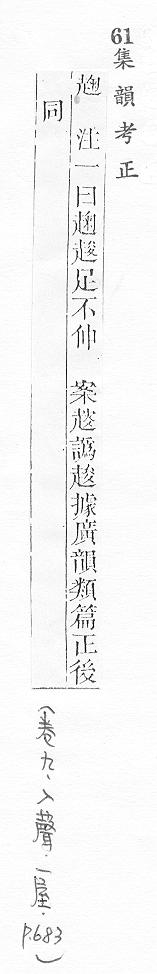 61
集韻考正
趜 注一曰趜足不伸 案譌據廣韻類篇正後
同
(卷九、入聲、一屋.p.683)